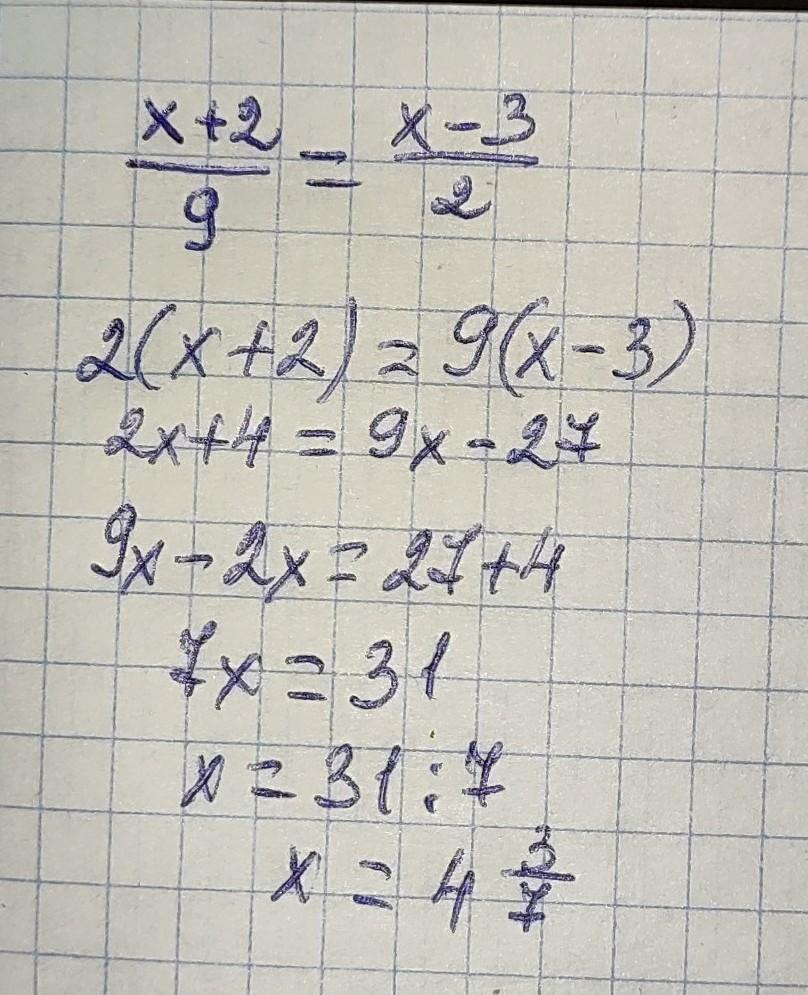 x+2/9 = x-3/2
2(x+2) = 9(x-3)
2x+4 = 9x-27
9x-2x = 27+4
7x = 31
x = 31:7
x = 4 3/7